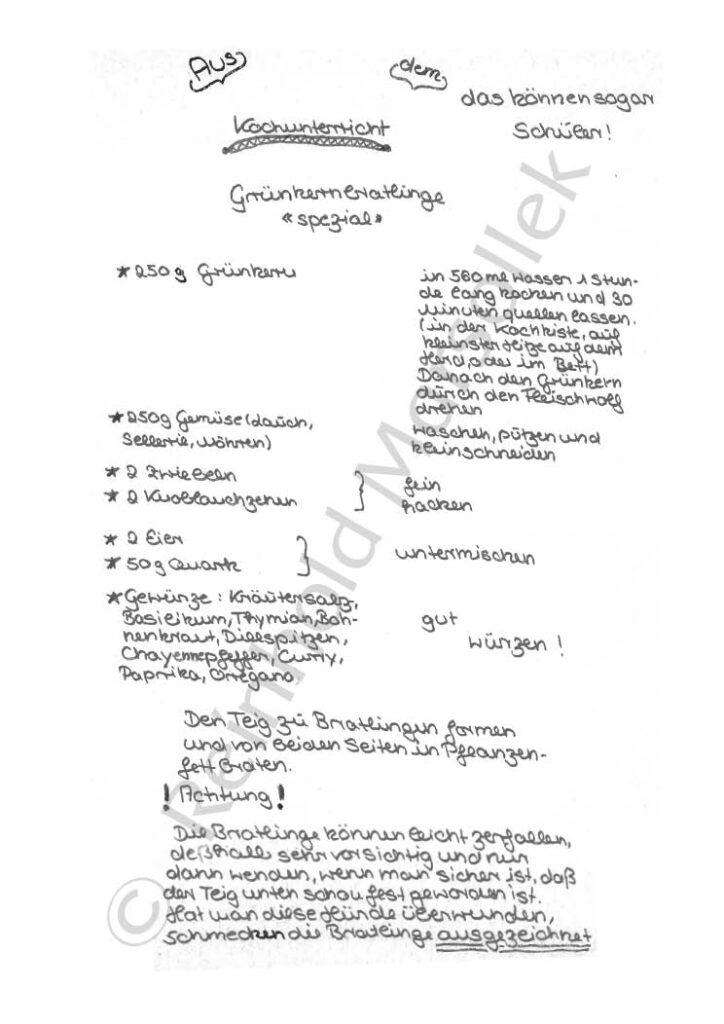 Aus dem
das können sogar
Schüler!
Kochunterricht
Grünkernbratlinge
«spezial»
* 250 g Grünkern
in 580 ml Wasser 1 Stun-
de lang kochen und 30
Minuten quellen lassen.
(in der Kochkiste, auf
kleinster Hitze auf dem
Herd, oder im Bett)
Danach den Grünkern
durch den Fleischwolf
drehen
* 250g Gemüse (Lauch,
Sellerie, Möhren)
waschen, putzen und
kleinschneiden
* 2 Zwiebeln
* 2 Knoblauchzehen
fein
hacken
* 2 Eier
* 50g Quark
untermischen
* Gewürze: Kräutersalz,
Basilikum, Thymian, Boh-
nenkraut, Dillspitzen,
Chayennepfeffer, Curry,
Paprika, Orregano
gut
würzen!
Den Teig zu Bratlingen formen
und von beiden Seiten in Pflanzen-
fett braten.
! Achtung !
Die Bratlinge können leicht zerfallen,
deßhalb sehr vorsichtig und nur
dann wenden, wenn man sicher ist, daß
der Teig unten schon fest geworden ist.
Hat man diese Hürde überwunden,
schmecken die Bratlinge ausgezeichnet
© Reinhold Marsollek